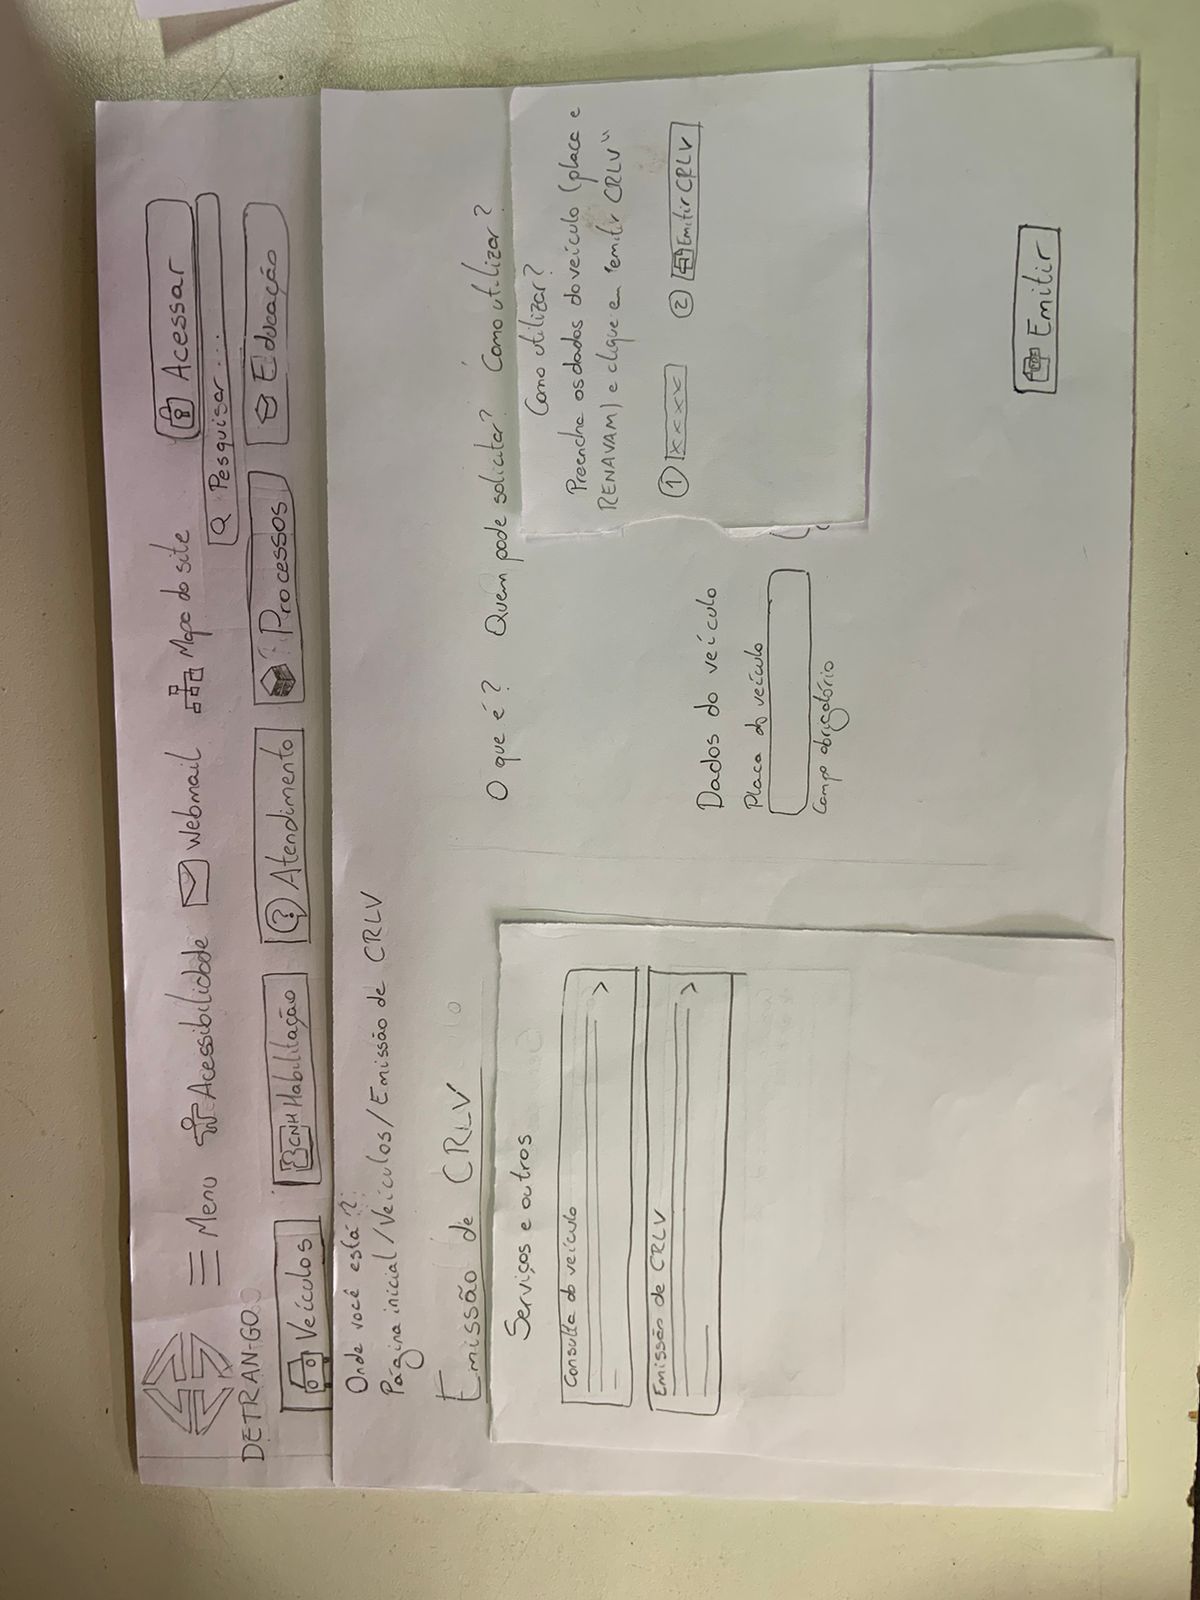 Menu Acessibilidade Webmail Mapa do site Acessar
Pesquisar...
DETRAN-GO
Veículos CNH Habilitação ? Atendimento Processos Educação
Onde você está?
Página inicial/Veículos/Emissão de CRLV
Emissão de CRLV
Serviços e outros
Consulta do veículo
>
Emissão de CRLV
>
O que é? Quem pode solicitar? Como utilizar?
Como utilizar?
Preencha os dados do veículo (placa e
RENAVAM) e clique em "emitir CRLV"
1 xxxx 2 Emitir CRLV
Dados do veículo
Placa do veículo
Campo obrigatório
PDF Emitir